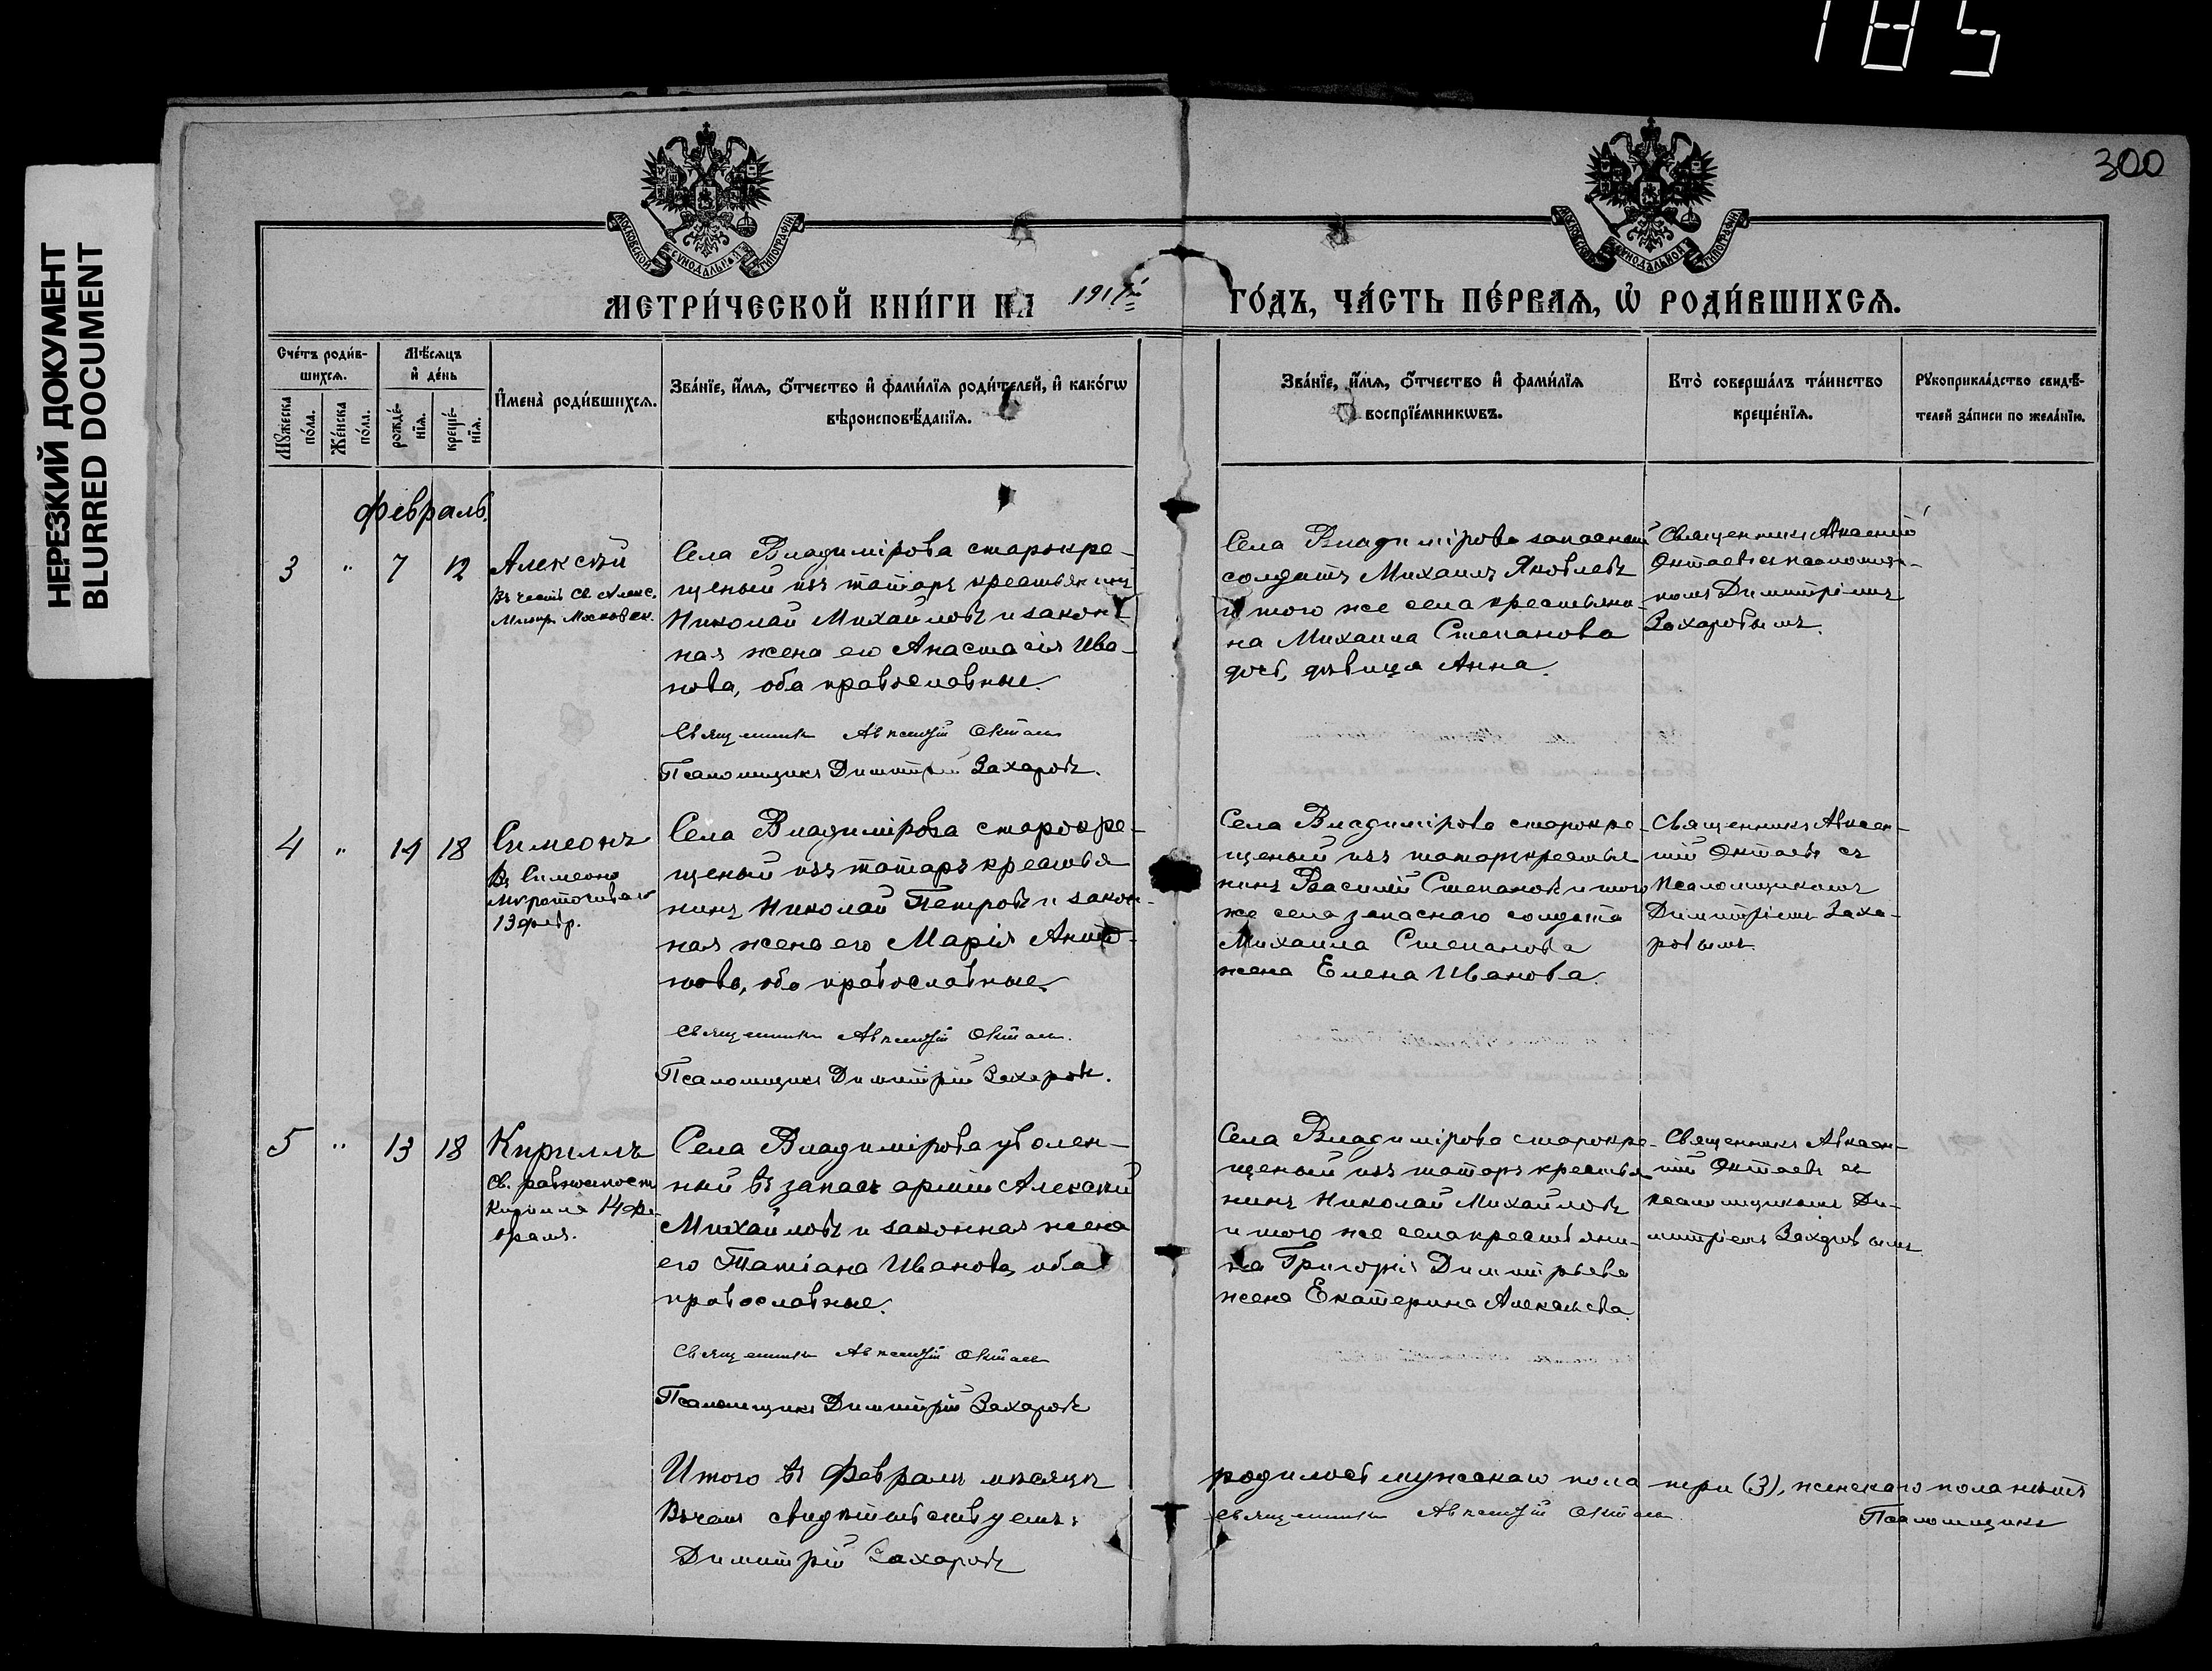 185
300
НЕРЕЗКИЙ ДОКУМЕНТ
BLURRED DOCUMENT
МОСКОВСКОЙ СѴНОДАЛЬНОЙ ТИПОГРАФІИ
МОСКОВСКОЙ СѴНОДАЛЬНОЙ ТИПОГРАФІИ
МЕТРИ́ЧЕСКОЙ КНИ́ГИ НА
ГО́ДЪ, ЧА́СТЬ ПЕ́РВАѦ, Ѡ҆ РОДИ́ВШИХСѦ.
Сче́тъ роди́в-
шихсѧ.
Мꙋ́жеска
по́ла.
Же́нска
по́ла.
Мѣ́сѧцъ
и҆ де́нь
рожде́-
нїѧ.
креще́-
нїѧ.
И҆мена̀ роди́вшихсѧ.
Зва́нїе, и҆́мѧ, ѻ҆́тчество и҆ фами́лїѧ роди́телей, и҆ како́гѡ
вѣроисповѣ́данїѧ.
Зва́нїе, и҆́мѧ, ѻ҆́тчество и҆ фами́лїѧ
воспрїе́мникѡвъ.
Кто̀ соверша́лъ та́инство
креще́нїѧ.
Рꙋкоприкла́дство свидѣ́-
телей за́писи по жела́нїю.
Февраль.
3 " 7 12
Алексѣй
Въ честь св. Алекс.
Митр. Московск.
Села Владимірова старокре-
щеный изъ татаръ крестьянинъ
Николай Михайловъ и закон-
ная жена его Анастасія Ива-
нова, оба православные.
Священникъ Авксентій Охтаевъ
Псаломщикъ Димитрій Захаровъ.
Села Владимірова запасный
солдатъ Михаилъ Яковлевъ
и того же села крестьяни-
на Михаила Степанова
дочь, дѣвица Анна.
Священникъ Авксентій
Охтаевъ съ псаломщи-
комъ Димитріемъ
Захаровымъ.
4 " 14 18
Симеонъ
Въ Симеона
Мироточиваго
13 февр.
Села Владимірова старокре-
щеный изъ татаръ крестья-
нинъ Николай Петровъ и закон-
ная жена его Марія
нова, оба православные.
Священникъ Авксентій Охтаевъ.
Псаломщикъ Димитрій Захаровъ.
Села Владимірова старокре-
щеный изъ татаръ крестья-
нинъ Василій Степановъ и того
же села запаснаго солдата
Михаила Степанова
жена Елена Иванова.
Священникъ Авксен-
тій Охтаевъ съ
псаломщикомъ
Димитріемъ Заха-
ровымъ.
5 " 13 18
Кириллъ
Св. равноапост.
Кирилла 14 фе-
враля.
Села Владимірова уволен-
ный въ запасъ арміи Алексѣй
Михайловъ и законная жена
его Татіана Иванова, оба
православные.
Священникъ Авксентій Охтаевъ
Псаломщикъ Димитрій Захаровъ
Села Владимірова старокре-
щеный изъ татаръ крестья-
нинъ Николай Михайловъ
и того же села крестьяни-
на Григорія Димитріева
жена Екатерина Алексѣева.
Священникъ Авксен-
тій Охтаевъ съ
псаломщикомъ Ди-
митріемъ Захаровымъ.
Итого въ Февралѣ мѣсяцѣ родилось мужескаго пола три (3), женскаго пола нѣтъ
Въ чемъ свидѣтельствуемъ: Священникъ Авксентій Охтаевъ Псаломщикъ
Димитрій Захаровъ